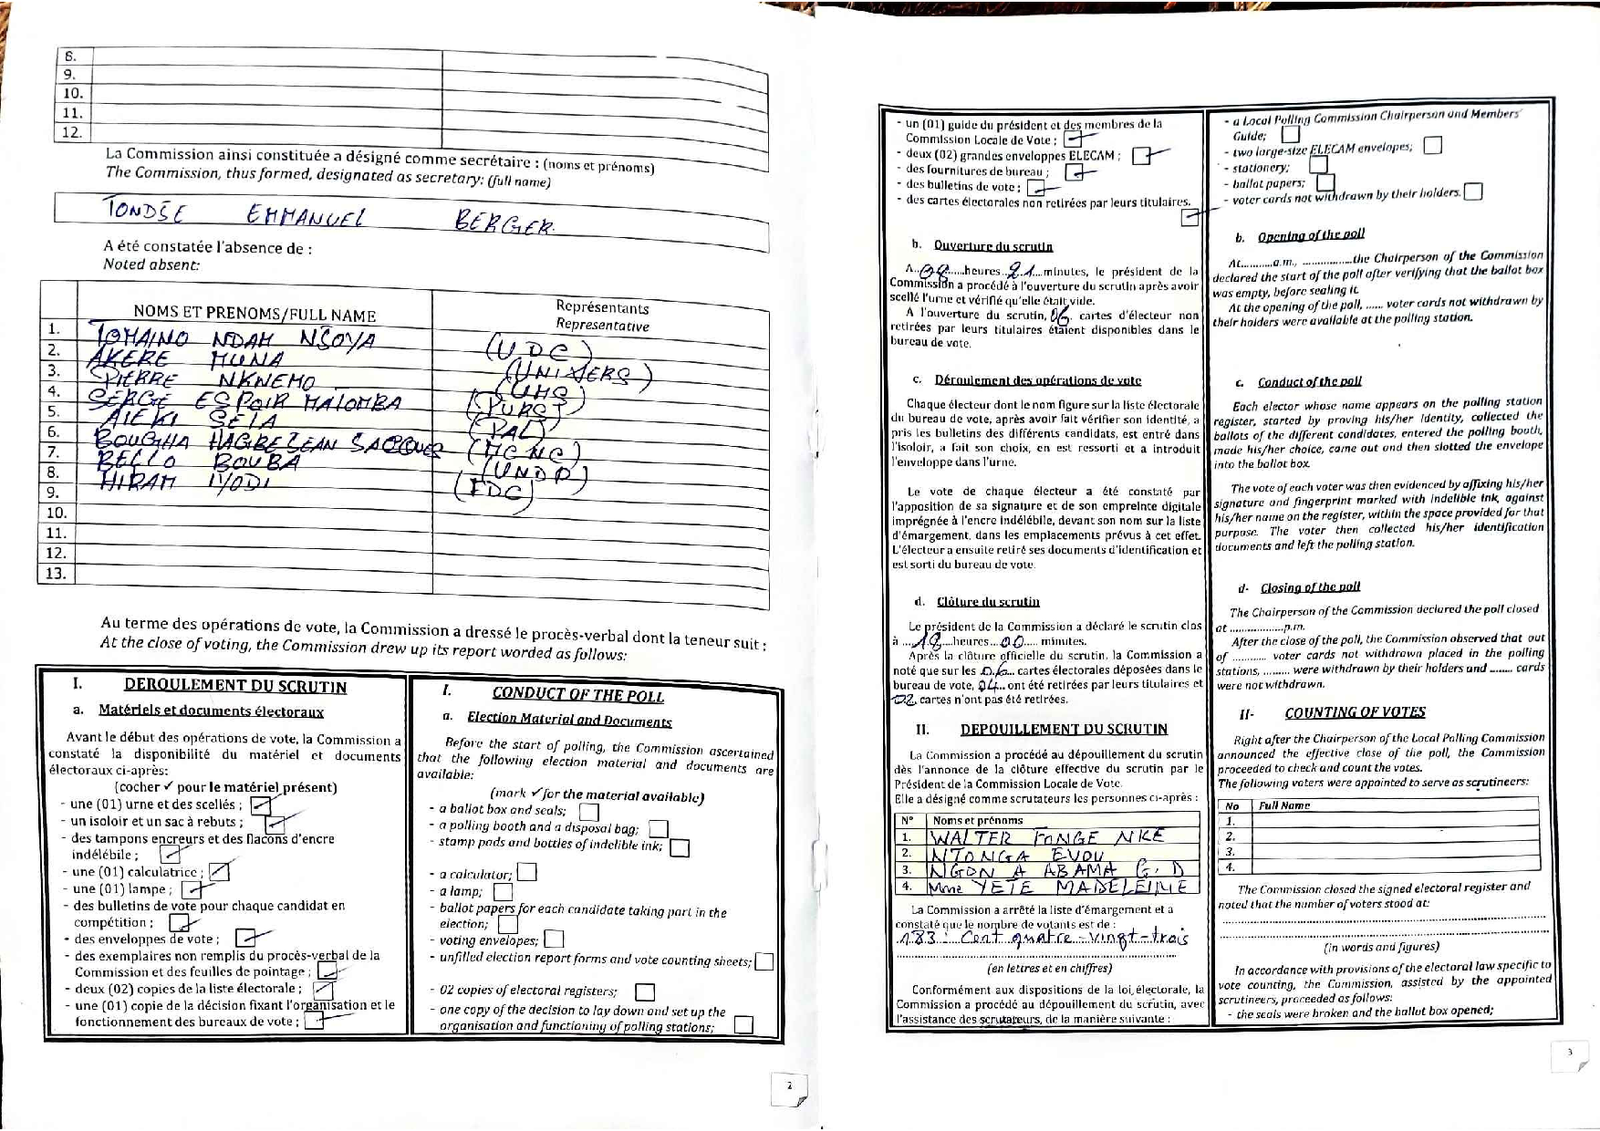 8.
9.
10.
11.
12.
La Commission ainsi constituée a désigné comme secrétaire : (noms et prénoms)
The Commission, thus formed, designated as secretary: (full name)
TONDSE EMMANUEL BERGER
A été constatée l'absence de :
Noted absent:
NOMS ET PRENOMS/FULL NAME
Représentants
Representative
1. TOMAINO NDAM NJOYA (UDC)
2. AKERE MUNA (UNIVERS)
3. PIERRE NKWEMO (UMS)
4. SERGE ESPOIR MATOMBA (PURS)
5. ATEKI SETA (PAL)
6. BOUGHA HAGBE JEAN JACQUES (MCNC)
7. BELLO BOUBA (UNDP)
8. HIRAM IYODI (FDC)
9.
10.
11.
12.
13.
Au terme des opérations de vote, la Commission a dressé le procès-verbal dont la teneur suit :
At the close of voting, the Commission drew up its report worded as follows:
I. DEROULEMENT DU SCRUTIN
a. Matériels et documents électoraux
Avant le début des opérations de vote, la Commission a
constaté la disponibilité du matériel et documents
électoraux ci-après:
(cocher ✓ pour le matériel présent)
- une (01) urne et des scellés ;
- un isoloir et un sac à rebuts ;
- des tampons encreurs et des flacons d'encre
indélébile ;
- une (01) calculatrice ;
- une (01) lampe ;
- des bulletins de vote pour chaque candidat en
compétition ;
- des enveloppes de vote ;
- des exemplaires non remplis du procès-verbal de la
Commission et des feuilles de pointage ;
- deux (02) copies de la liste électorale ;
- une (01) copie de la décision fixant l'organisation et le
fonctionnement des bureaux de vote ;
I. CONDUCT OF THE POLL
a. Election Material and Documents
Before the start of polling, the Commission ascertained
that the following election material and documents are
available:
(mark ✓ for the material available)
- a ballot box and seals;
- a polling booth and a disposal bag;
- stamp pads and bottles of indelible ink;
- a calculator;
- a lamp;
- ballot papers for each candidate taking part in the
election;
- voting envelopes;
- unfilled election report forms and vote counting sheets;
- 02 copies of electoral registers;
- one copy of the decision to lay down and set up the
organisation and functioning of polling stations;
2
- un (01) guide du président et des membres de la
Commission Locale de Vote ;
- deux (02) grandes enveloppes ELECAM ;
- des fournitures de bureau ;
- des bulletins de vote ;
- des cartes électorales non retirées par leurs titulaires.
b. Ouverture du scrutin
A 08 heures 21 minutes, le président de la
Commission a procédé à l'ouverture du scrutin après avoir
scellé l'urne et vérifié qu'elle était vide.
A l'ouverture du scrutin, 06 cartes d'électeur non
retirées par leurs titulaires étaient disponibles dans le
bureau de vote.
c. Déroulement des opérations de vote
Chaque électeur dont le nom figure sur la liste électorale
du bureau de vote, après avoir fait vérifier son identité, a
pris les bulletins des différents candidats, est entré dans
l'isoloir, a fait son choix, en est ressorti et a introduit
l'enveloppe dans l'urne.
Le vote de chaque électeur a été constaté par
l'apposition de sa signature et de son empreinte digitale
imprégnée à l'encre indélébile, devant son nom sur la liste
d'émargement, dans les emplacements prévus à cet effet.
L'électeur a ensuite retiré ses documents d'identification et
est sorti du bureau de vote.
d. Clôture du scrutin
Le président de la Commission a déclaré le scrutin clos
à 18 heures 00 minutes.
Après la clôture officielle du scrutin, la Commission a
noté que sur les 06 cartes électorales déposées dans le
bureau de vote, 04 ont été retirées par leurs titulaires et
02 cartes n'ont pas été retirées.
II. DEPOUILLEMENT DU SCRUTIN
La Commission a procédé au dépouillement du scrutin
dès l'annonce de la clôture effective du scrutin par le
Président de la Commission Locale de Vote.
Elle a désigné comme scrutateurs les personnes ci-après :
N° Noms et prénoms
1. WALTER FONGE NKE
2. NTONGA EVOU
3. NGON A ABAMA G. D
4. Mme YETE MADELEINE
La Commission a arrêté la liste d'émargement et a
constaté que le nombre de votants est de :
183 : Cent quatre-vingt-trois
(en lettres et en chiffres)
Conformément aux dispositions de la loi électorale, la
Commission a procédé au dépouillement du scrutin, avec
l'assistance des scrutateurs, de la manière suivante :
- a Local Polling Commission Chairperson and Members'
Guide;
- two large-size ELECAM envelopes;
- stationery;
- ballot papers;
- voter cards not withdrawn by their holders.
b. Opening of the poll
At..........a.m., ................the Chairperson of the Commission
declared the start of the poll after verifying that the ballot box
was empty, before sealing it.
At the opening of the poll, ...... voter cards not withdrawn by
their holders were available at the polling station.
c. Conduct of the poll
Each elector whose name appears on the polling station
register, started by proving his/her identity, collected the
ballots of the different candidates, entered the polling booth,
made his/her choice, came out and then slotted the envelope
into the ballot box.
The vote of each voter was then evidenced by affixing his/her
signature and fingerprint marked with indelible ink, against
his/her name on the register, within the space provided for that
purpose. The voter then collected his/her identification
documents and left the polling station.
d- Closing of the poll
The Chairperson of the Commission declared the poll closed
at ..................p.m.
After the close of the poll, the Commission observed that out
of ........... voter cards not withdrawn placed in the polling
stations, ......... were withdrawn by their holders and ........ cards
were not withdrawn.
II- COUNTING OF VOTES
Right after the Chairperson of the Local Polling Commission
announced the effective close of the poll, the Commission
proceeded to check and count the votes.
The following voters were appointed to serve as scrutineers:
No Full Name
1.
2.
3.
4.
The Commission closed the signed electoral register and
noted that the number of voters stood at:
(in words and figures)
In accordance with provisions of the electoral law specific to
vote counting, the Commission, assisted by the appointed
scrutineers, proceeded as follows:
- the seals were broken and the ballot box opened;
3